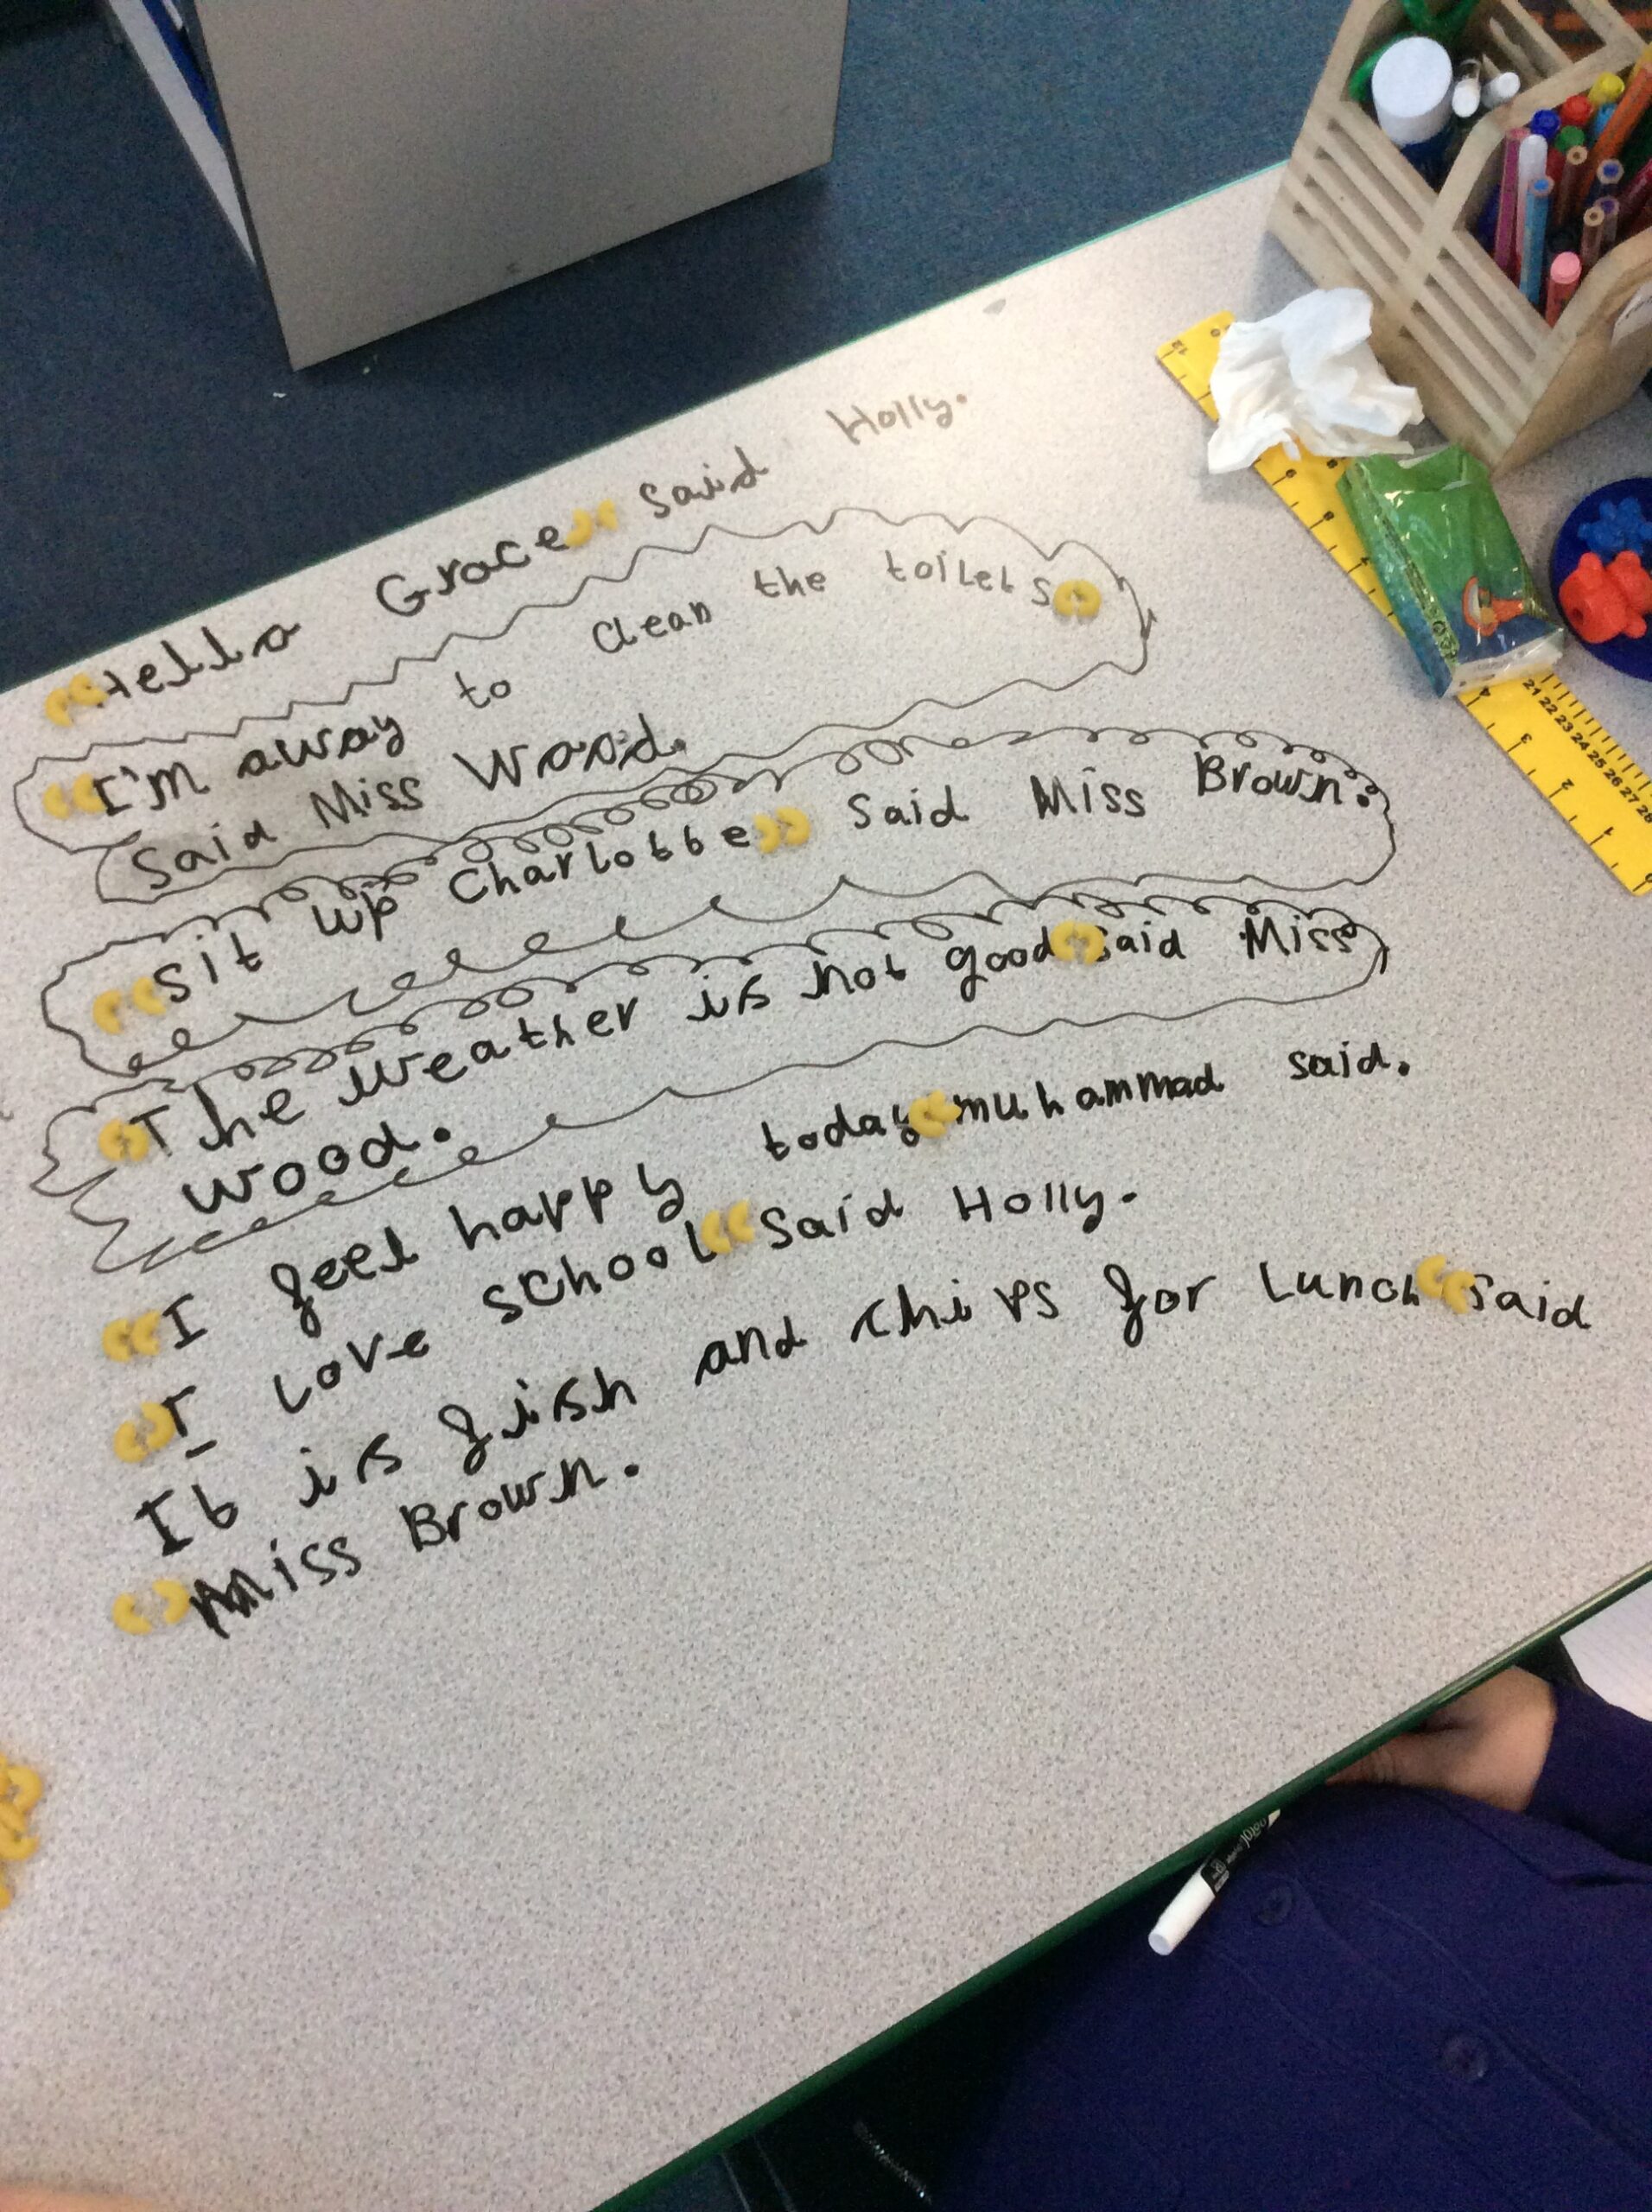 Hello Grace said Holly.
I'm away to clean the toilets
Said Miss Wood.
Sit up Charlotte said Miss Brown.
The weather is not good said Miss
Wood.
I feel happy today muhammad said.
I love school said Holly.
It is fish and chips for lunch said
Miss Brown.
12
21 22 23 24 25 26 27 28